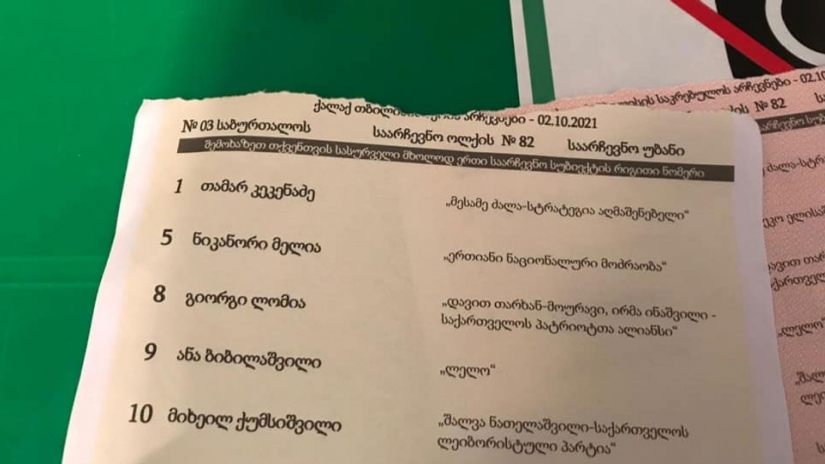 ქალაქ თბილისის მერის არჩევნები - 02.10.2021
№ 03 საბურთალოს საარჩევნო ოლქის № 82 საარჩევნო უბანი
შემოხაზეთ თქვენთვის სასურველი მხოლოდ ერთი საარჩევნო სუბიექტის რიგითი ნომერი
1 თამარ კეკენაძე „მესამე ძალა-სტრატეგია აღმაშენებელი“
5 ნიკანორი მელია „ერთიანი ნაციონალური მოძრაობა“
8 გიორგი ლომია „დავით თარხან-მოურავი, ირმა ინაშვილი -
საქართველოს პატრიოტთა ალიანსი“
9 ანა ბიბილაშვილი „ლელო“
10 მიხეილ ქუმსიშვილი „შალვა ნათელაშვილი-საქართველოს
ლეიბორისტული პარტია“
საკრებულოს არჩევნები - 02.10
№ 82
„ლელო“